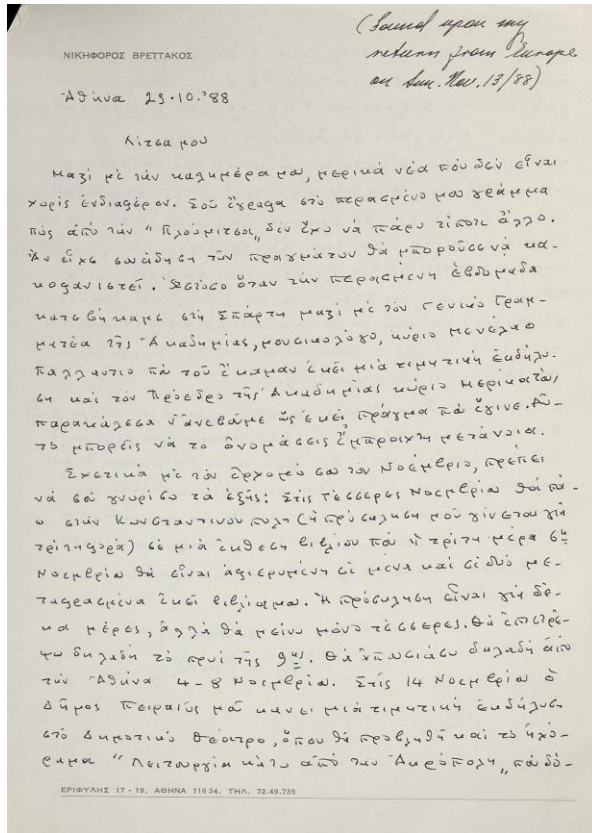 (Found upon my
return from Europe
on Sun. Nov. 13/88)
ΝΙΚΗΦΟΡΟΣ ΒΡΕΤΤΑΚΟΣ
Ἀθήνα 23.10.'88
Λίτσα μου
Μαζί μέ τήν καλημέρα μου, μερικά νέα πού δέν εἶναι
χωρίς ἐνδιαφέρον. Σοῦ ἔγραφα στό περασμένο μου γράμμα
πώς ἀπό τήν "Πλούμιτσα" δέν ἔχω νά πάρω τίποτε ἄλλο.
Ἄν εἶχε συνείδηση τῶν πραγμάτων θά μποροῦσε νά κα-
κοφανιστεῖ. Ὡστόσο ὅταν τήν περασμένη ἑβδομάδα
κατεβήκαμε στή Σπάρτη μαζί μέ τόν Γενικό Γραμ-
ματέα τῆς Ἀκαδημίας, μουσικολόγο, κύριο Μενέλαο
Παλλάντιο πού τοῦ ἔκαμαν ἐκεῖ μιά τιμητική ἐκδήλω-
ση καί τόν Πρόεδρο τῆς Ἀκαδημίας κύριο Μερικα
παρακάλεσα ν' ἀνεβοῦμε ὥς ἐκεῖ πράγμα πού ἔγινε. Αὐ-
τό μπορεῖς νά τό ὀνομάσεις ἔμπρακτη μετάνοια.
Σχετικά μέ τόν ἐρχομό σου τόν Νοέμβριο, πρέπει
νά σοῦ γνωρίσω τά ἑξῆς: Στίς τέσσερες Νοεμβρίου θά πά-
ω στήν Κωνσταντινούπολη (ἡ πρόσκληση μοῦ γίνεται γιά
τρίτη φορά) σέ μιά ἔκθεση βιβλίου πού ἡ τρίτη μέρα 6η
Νοεμβρίου θά εἶναι ἀφιερωμένη σέ μένα καί σέ δυό με-
ταφρασμένα ἐκεῖ βιβλία μου. Ἡ πρόσκληση εἶναι γιά δέ-
κα μέρες, ἀλλά θά μείνω μόνο τέσσερες. Θά ἐπιστρέ-
ψω δηλαδή τό πρωί τῆς 9ης. Θά ἀπουσιάσω δηλαδή ἀπό
τήν Ἀθήνα 4-8 Νοεμβρίου. Στίς 14 Νοεμβρίου ὁ
Δῆμος Πειραιῶς μοῦ κάνει μιά τιμητική ἐκδήλωση
στό Δημοτικό Θέατρο, ὅπου θά προβληθῆ καί τό ἠχό-
ραμα "Λειτουργία κάτω ἀπό τήν Ἀκρόπολη" πού δό-
ΕΡΙΦΥΛΗΣ 17 - 19, ΑΘΗΝΑ 116 34, ΤΗΛ. 72.49.735